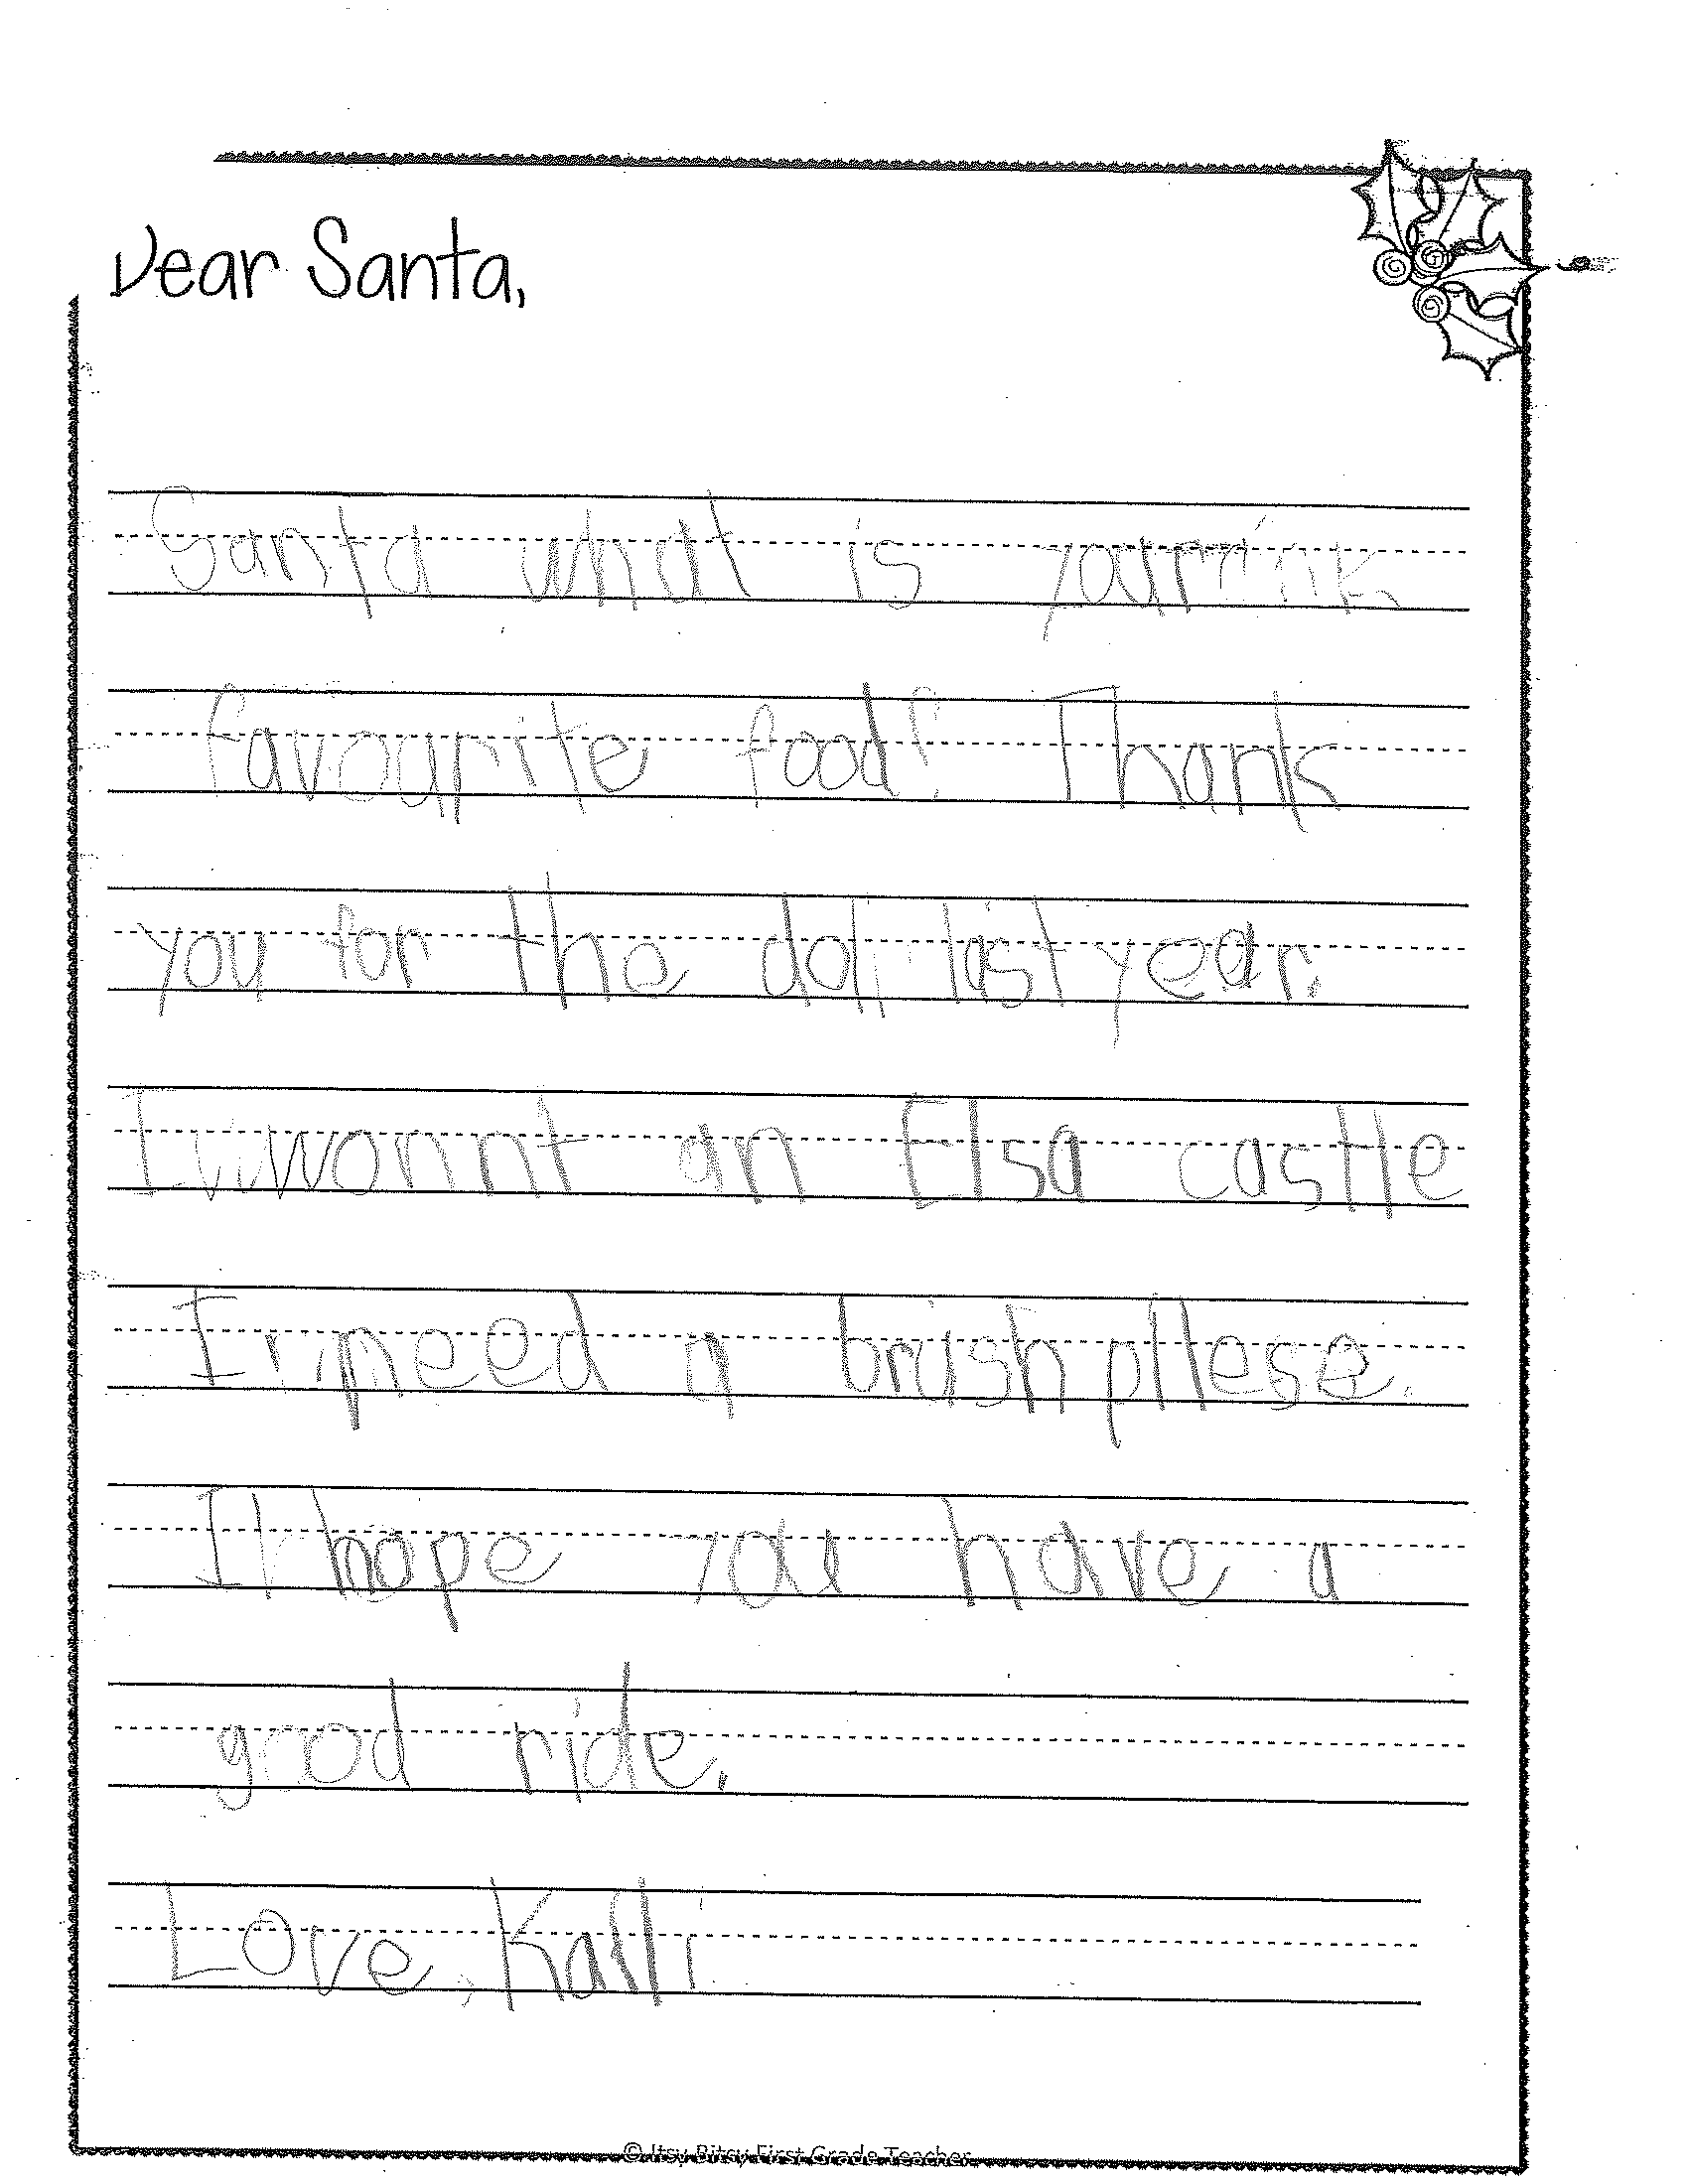 Dear Santa,
Santa what is your
favourite food? Thank
you for the doll last year.
I wonnt an Elsa castle
I need a brush pllese.
I hope you have a
good ride.
Love, Kalli
© Itsy Bitsy First Grade Teacher